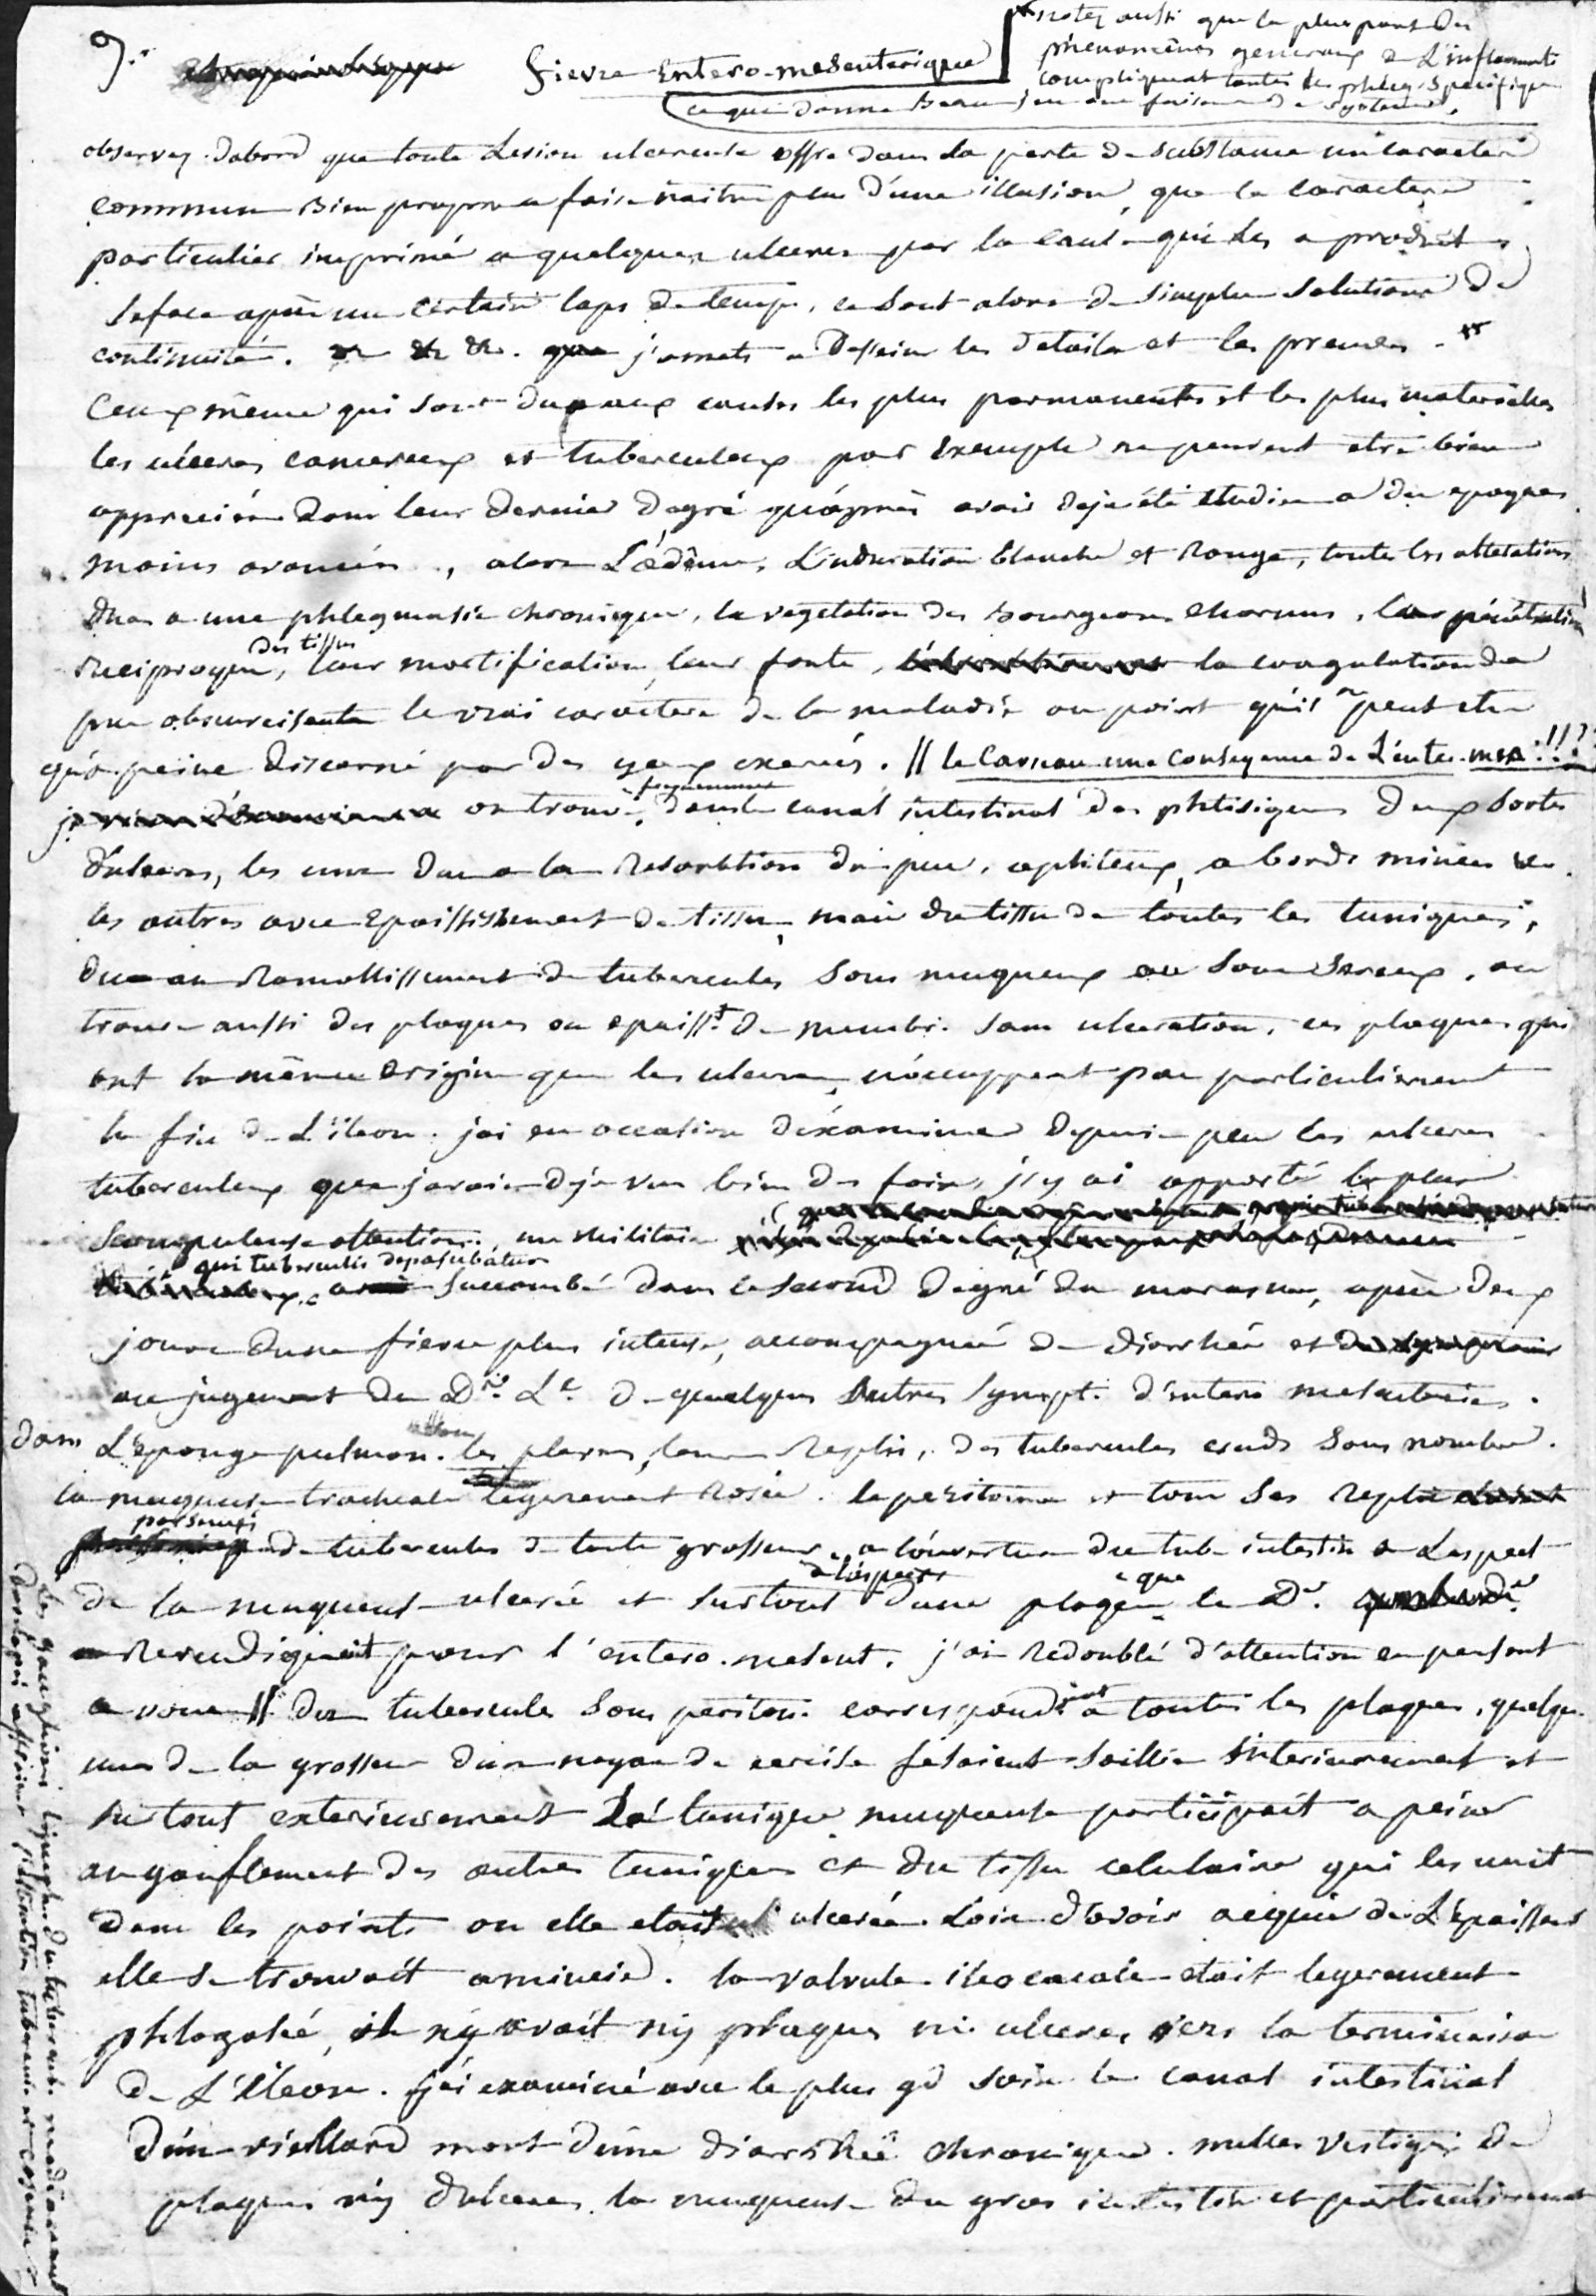 9.° fievre Entero-mesenterique
notez aussi que la plus part des
phenomènes generaux de L'inflammat.
compliquent toutes les phleg. specifiques
ce qui donne beau jeu aux faiseurs de systèmes.
observez d'abord que toute Lesion ulcereuse offre dans la perte de substance un caractere
commun bien propre a faire naitre plus d'une illusion, que le caractere
particulier imprimé a quelques ulceres par la cause qui les a produits
s'efface après un certain laps de temps, ce sont alors de simples solutions de
continuité. &c &c. j'omets a dessein les details et les preuves.
Ceux même qui sont dus aux causes les plus permanentes et les plus materielles
les ulceres cancereux et tuberculeux par exemple ne peuvent etre bien
appreciés dans leur dernier degré qu'aprés avoir deja été etudiés a des epoques
moins avancées, alors L'œdème, L'induration blanche et rouge, toutes les alterations
dues a une phlegmasie chronique, la vegetation des bourgeons charnus, leur pénétration
reciproque, des tissus leur mortification, leur fonte, la coagulation du
pus obscurcissent le vrai caractere de la maladie au point qu'il ne peut etre
qu'a peine discerné par des yeux exercés. // le Carreau une consequence de L'entero-mes: !!!?
on trouve frequemment dans le canal intestinal des phtisiques deux sortes
d'ulceres, les uns dus a la resorbtion du pus, aphteux, a bords minces &c.
les autres avec epaississement de tissu, mais du tissu de toutes les tuniques,
dus au ramollissement de tubercules sous muqueux ou sous sereux. on
trouve aussi des plaques ou epaisst. de membr. sans ulceration, ces plaques qui
ont la même origine que les ulceres, n'occuppent pas particulierement
la fin de L'iléon. j'ai eu occasion d'examiner depuis peu les ulceres
tuberculeux que j'avais deja vus bien des fois, j'y ai apporté la plus
scrupuleuse attention. un militaire
qui tuberculis depascebatur a succombé dans le second degré du marasme, après deux
jours d'une fievre plus intense, accompagnée de diarrhée et
au jugement du Dr. L. de quelques autres sympt. d'entero mesenterie.
Dans L'eponge pulmon. les plevres, leurs replis, des tubercules cruds sans nombre.
la muqueuse tracheale legerement rosée. le peritoine et tous ses replis
parsemés de tubercules de toute grosseur. a l'ouverture du tube intestin a L'aspect
de la muqueuse ulcerée et surtout a l'aspect d'une plaque que le Dr.
revendiquait pour l'entero.mesent. j'ai redoublé d'attention en pensant
a vous // des tubercules sous periton. correspondaient a toutes les plaques, quelques
uns de la grosseur d'un noyau de cerise fesaient saillie interieurement et
surtout exterieurement La tunique muqueuse participait a peine
au gonflement des autres tuniques et du tissu celulaire qui les unit
dans les points ou elle etait ulcerée. Loin d'avoir acquis de L'épaisseur
elle se trouvait amincie. la valvule iléocaecale etait legerement
phlogosée, il n'y avait ny plaques ni ulceres vers la terminaison
de L'iléon. j'ai examiné avec le plus gd soin le canal intestinal
d'un viellard mort d'une diarrhée chronique. nulles vestiges de
plaques ny d'ulceres. la muqueuse du gros intestin et particulierement
les ganglions lymphe. du tubercule